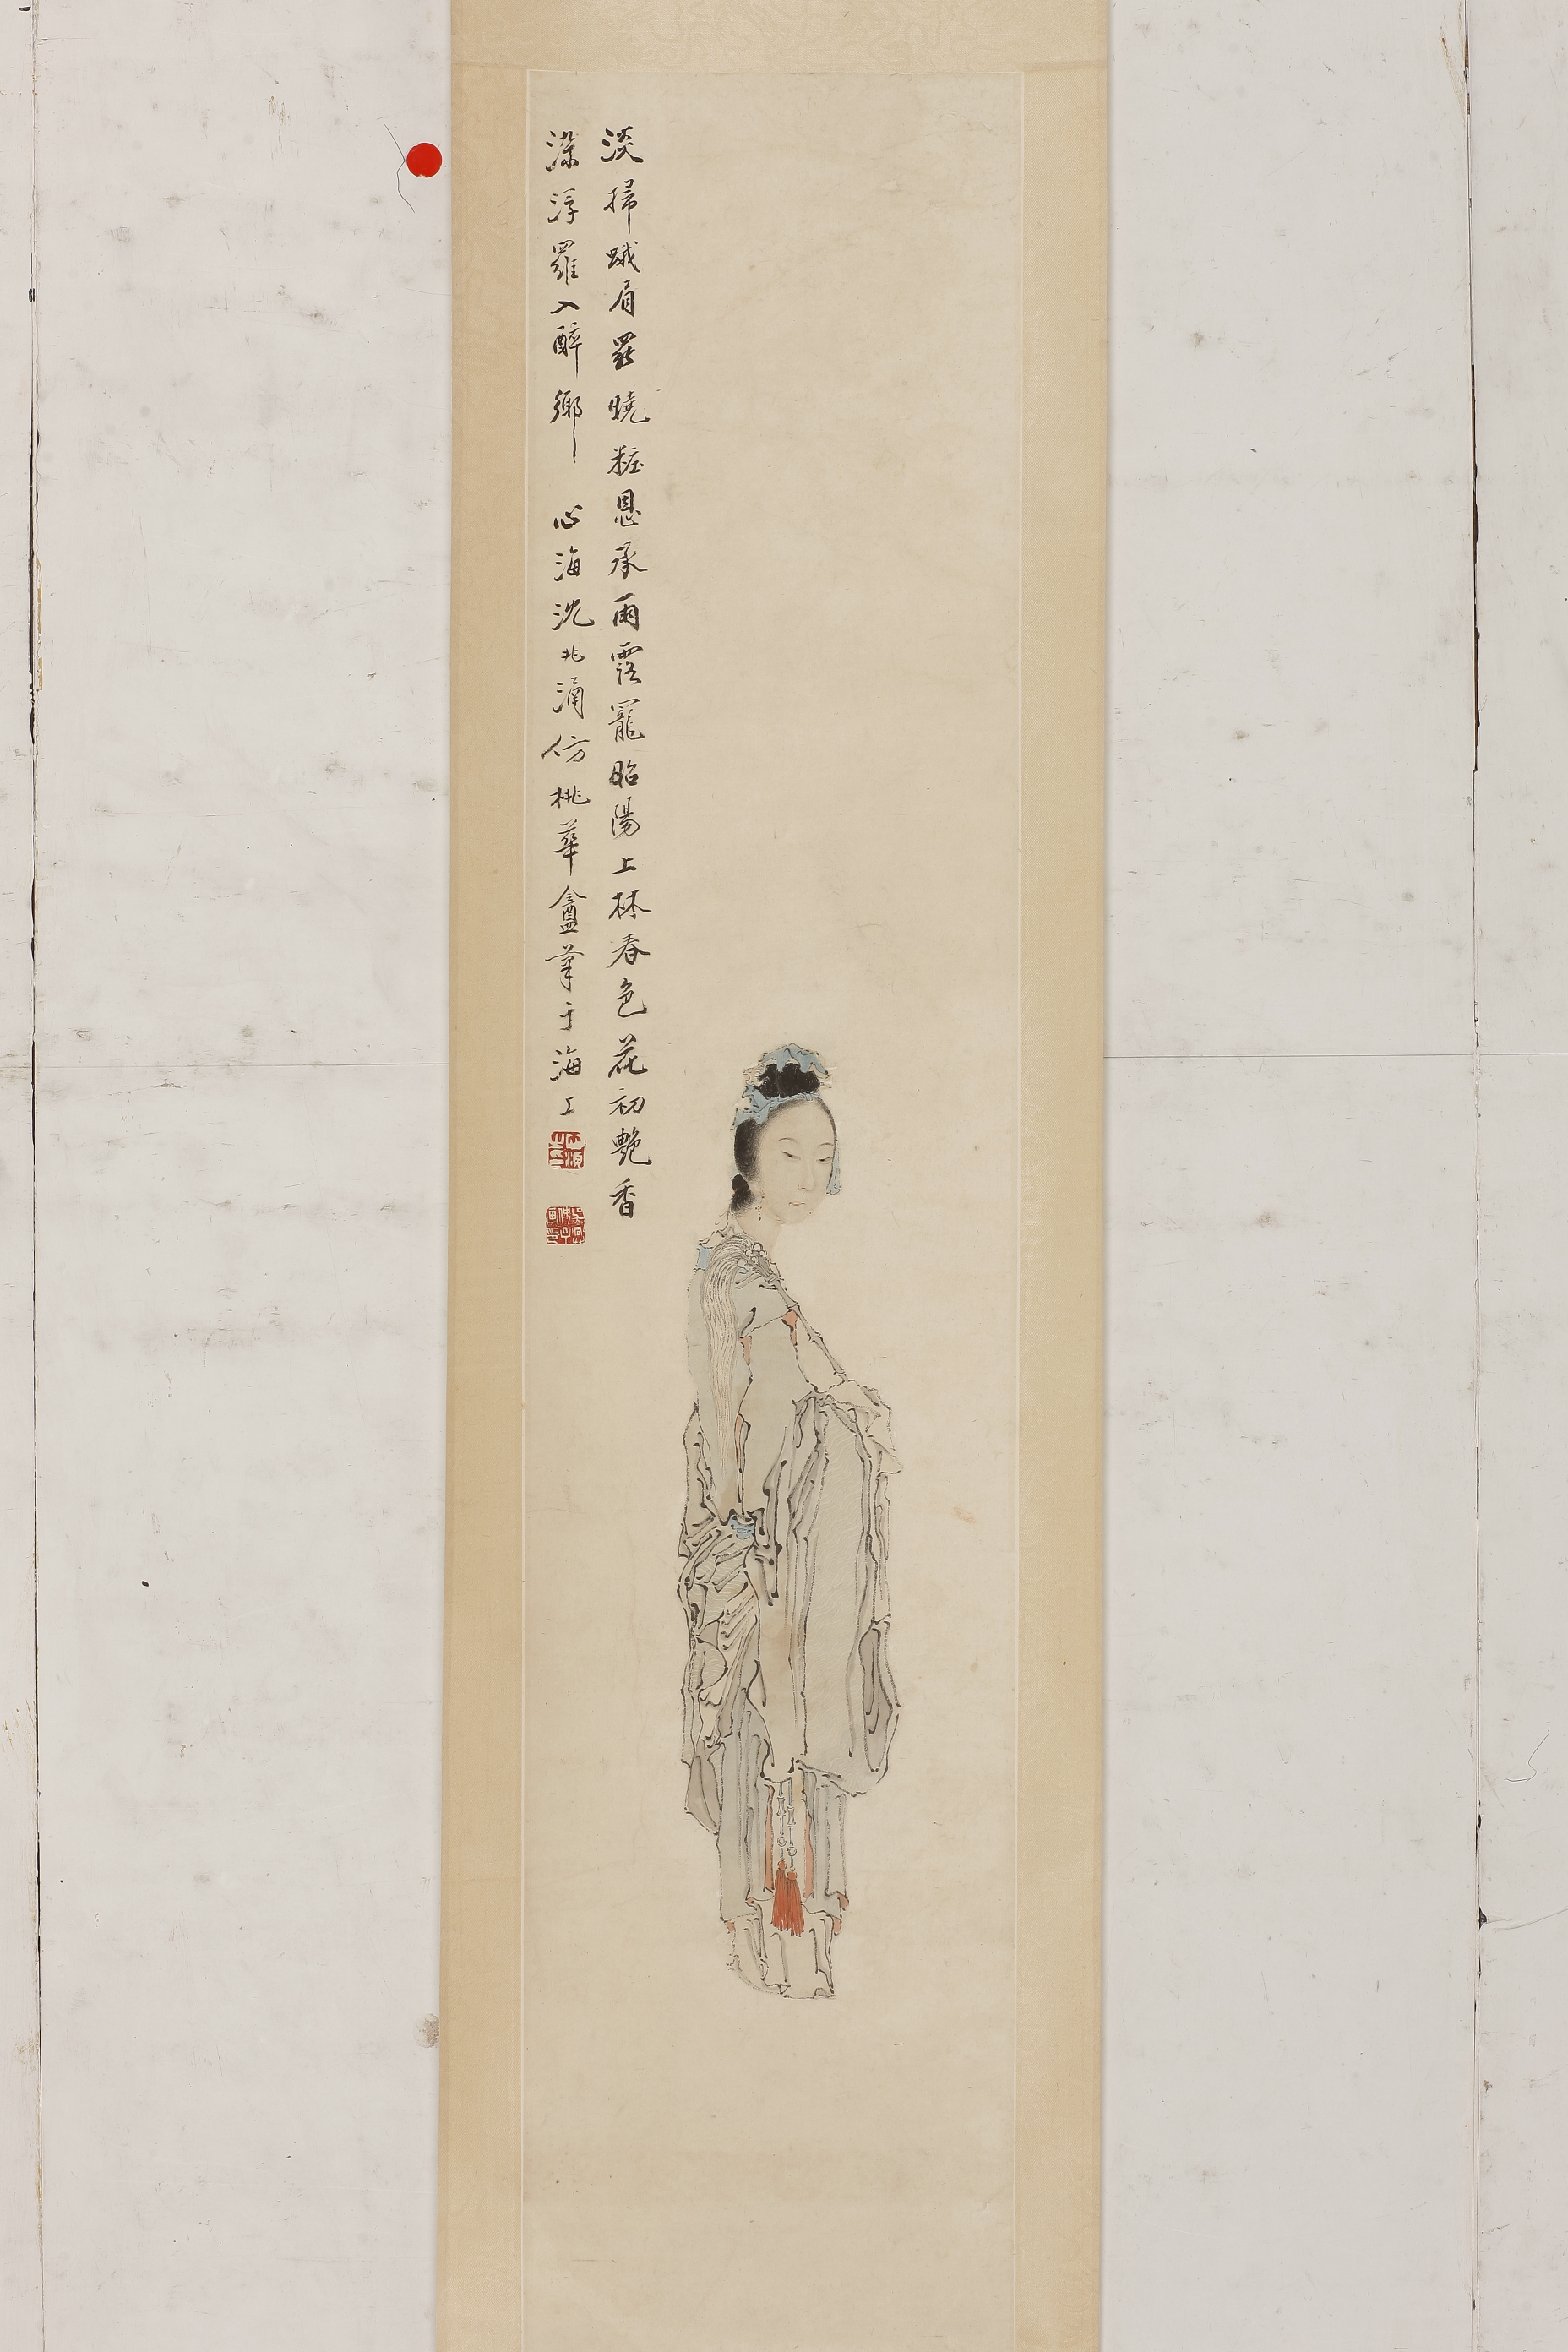 淡掃蛾眉罷曉粧恩承雨露寵昭陽上林春色花初艷香
深浮羅入醉鄉 心海沈兆涵仿桃華盦筆于海上